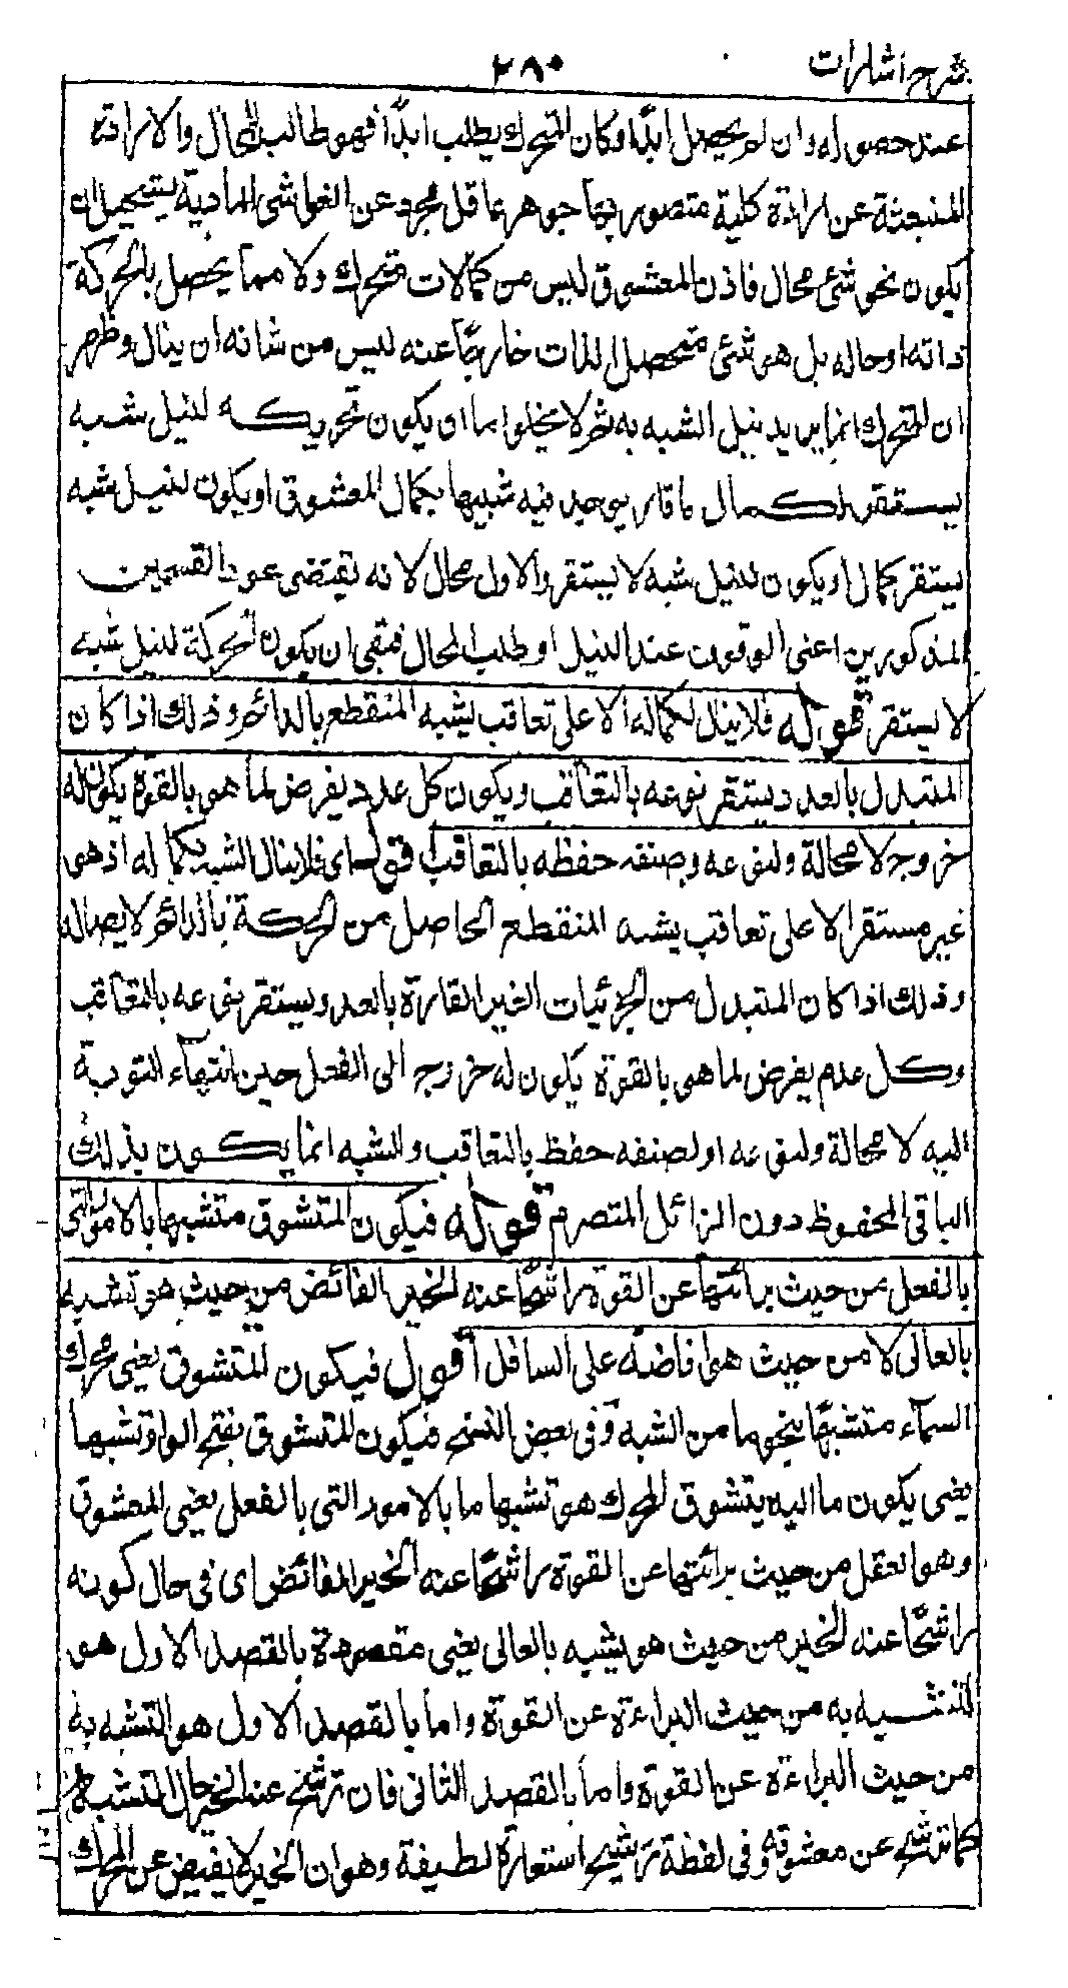 شرح اشارات ٢٨٠
عند حصوله وان لم يحصل ابدًا وكان المتحرك يطلب ابدًا فهو طالب للمحال والارادة
المنبعثة عن ارادة كلية متصور بها جوهر عاقل مجرد عن الغواشى المادية يستحيل ان
يكون نحو شئ محال فاذن المعشوق ليس من كمالات متحرك ولا مما يحصل بالحركة
ذاته او حاله بل هو شئ متحصل الذات خارجًا عنه ليس من شانه ان ينال وظهر
ان المتحرك انما يريد نيل الشبه به ثم لا يخلو اما ان يكون تحريكه لنيل شبه
يستقر لكمال ما قار يوجد فيه شبيها بكمال المعشوق او يكون لنيل شبه
يستقر كمال او يكون لنيل شبه لا يستقر والاول محال لانه يقتضى عود القسمين
المذكورين اعنى الوقوف عند النيل او طلب المحال فبقى ان يكون الحركة لنيل شبه
لا يستقر قوله فلا ينال لكماله الا على تعاقب يشبه المنقطع بالدائم وذلك اذا كان
المتبدل بالعدد يستقر نوعه بالتعاقب ويكون كل عدد يفرض لما هو بالقوة يكون له
خروج لا محالة ولنوعه وصنفه حفظه بالتعاقب اقول اى فلا ينال الشبه بكماله اذ هى
غير مستقر الا على تعاقب يشبه المنقطع الحاصل من الحركة بالدائم لايصاله
وذلك اذا كان المتبدل من الجزئيات الغير القارة بالعدد ويستقر نوعه بالتعاقب
وكل عدم يفرض لما هى بالقوة يكون له خروج الى الفعل حين انتهاء النوبة
اليه لا محالة ولنوعه او لصنفه حفظ بالتعاقب والشبه انما يكون بذلك
الباقى المحفوظ دون الزائل المتصرم قوله فيكون المتشوق متشبها بالامور التى
بالفعل من حيث برائتها عن القوة راشحًا عنه الخير الفائض من حيث هو تشبه
بالعالى لا من حيث هو افاضة على السافل اقول فيكون المتشوق يعنى محرك
السمآء متشبهًا بنحو ما من الشبه وفى بعض النسخ فيكون المتشوق بفتح الواو تشبها
يعنى يكون ما اليه يتشوق المحرك هو تشبها ما بالامور التى بالفعل يعنى المعشوق
وهو العقل من حيث برائتها عن القوة راشحًا عنه الخير الفائض اى فى حال كونه
راشحًا عنه الخير من حيث هو يشبه بالعالى يعنى مقصوده بالقصد الاول هو
التشبه به من حيث البراءة عن القوة واما بالقصد الاول هو التشبه به
من حيث البراءة عن القوة واما بالقصد الثانى فان ترشح عنه الخير حال التشبه
كما ترشح عن معشوقه وفى لفظة ترشيح استعارة لطيفة وهو ان الخير لا يفيض عن المحرك